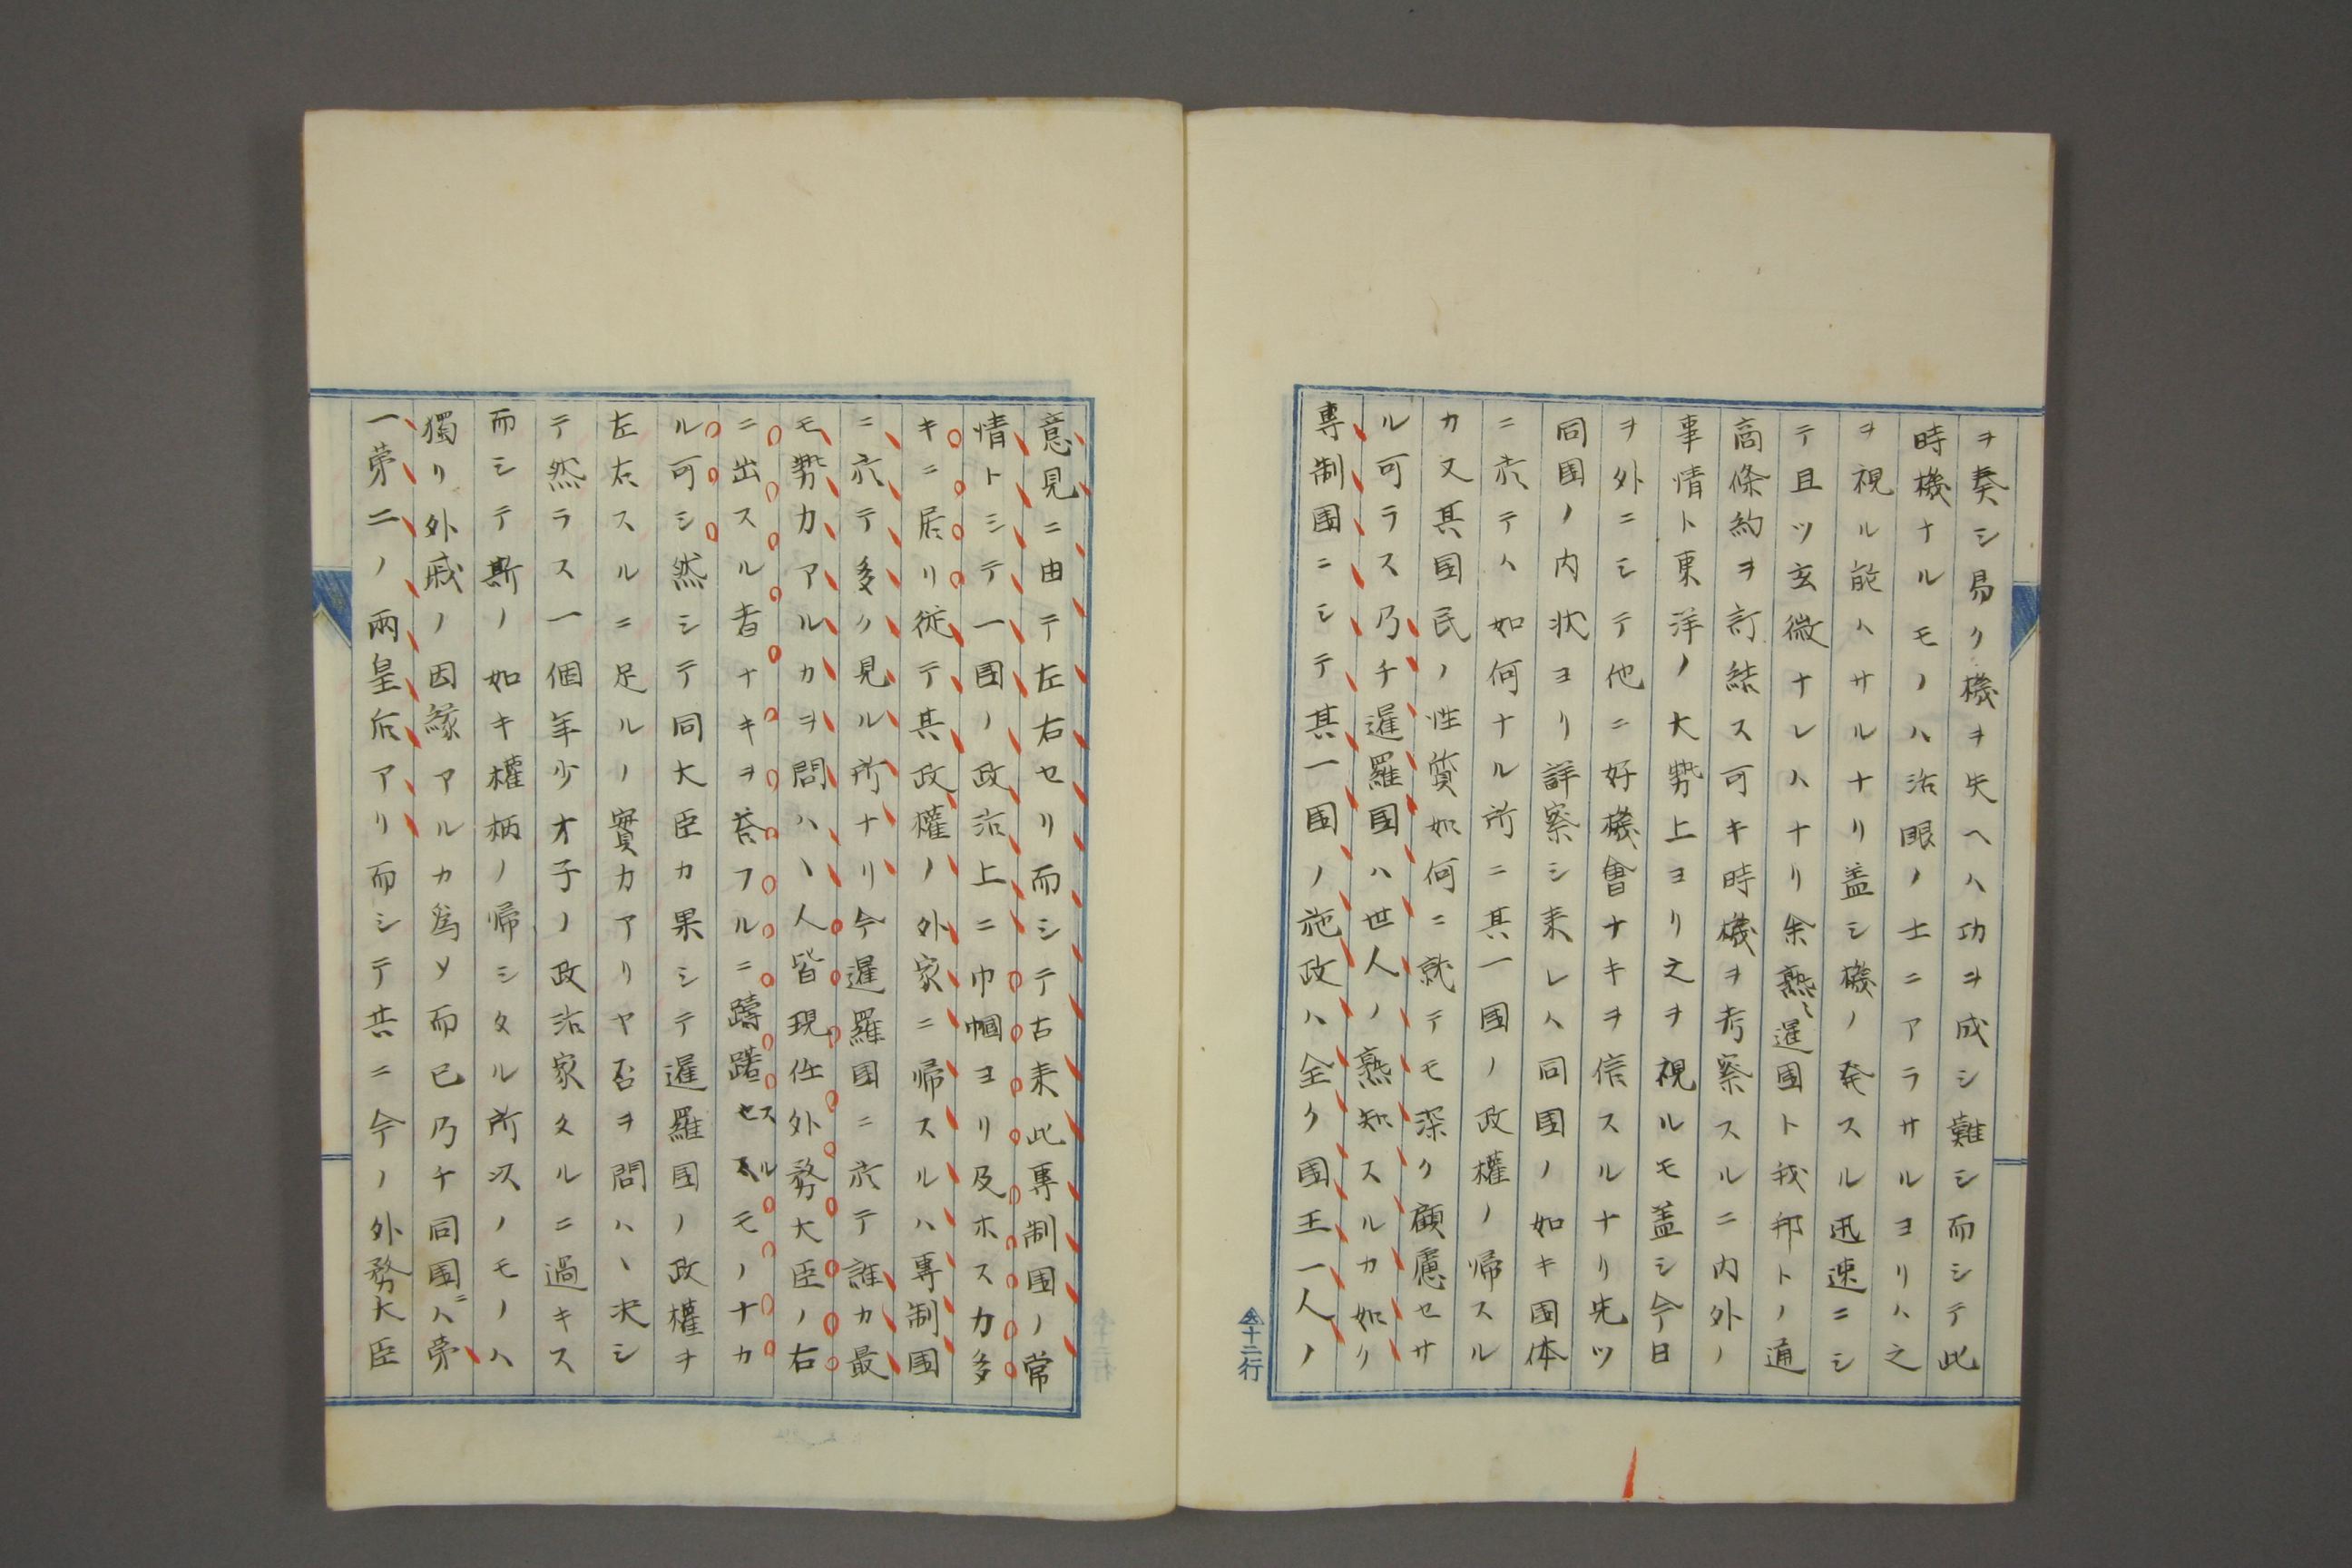 ヲ奏シ易ク機ヲ失ヘハ功ヲ成シ難シ而シテ此
時機ナルモノハ活眼ノ士ニアラサルヨリハ之
ヲ視ル能ハサルナリ盖シ機ノ発スル迅速ニシ
テ且ツ玄微ナレハナリ余熟〻暹国ト我邦トノ通
商條約ヲ訂結ス可キ時機ヲ考察スルニ内外ノ
事情ト東洋ノ大勢上ヨリ之ヲ視ルモ盖シ今日
ヲ外ニシテ他ニ好機會ナキヲ信スルナリ先ツ
同国ノ内状ヨリ詳察シ来レハ同国ノ如キ国体
ニ於テハ如何ナル所ニ其一國ノ政權ノ帰スル
カ又其国民ノ性質如何ニ就テモ深ク顧慮セサ
ル可ラス乃チ暹羅国ハ世人ノ熟知スルカ如ク
専制国ニシテ其一国ノ施政ハ全ク国王一人ノ
仌十二行
意見ニ由テ左右セリ而シテ古来此専制国ノ常
情トシテ一国ノ政治上ニ巾幗ヨリ及ホスカ多
キニ居リ従テ其政權ノ外家ニ帰スルハ専制国
ニ於テ多ク見ル所ナリ今暹羅国ニ於テ誰カ最
モ勢力アルカヲ問ハヽ人皆現任外務大臣ノ右
ニ出スル者ナキヲ荅フルニ躊躇セスルモノナカ
ル可シ然シテ同大臣カ果シテ暹羅国ノ政權ヲ
左右スルニ足ルノ實力アリヤ否ヲ問ハヽ决シ
テ然ラス一個年少才子ノ政治家タルニ過キス
而シテ斯ノ如キ權柄ノ帰シタル所以ノモノハ
獨リ外戚ノ因縁アルカ為ソ而已乃チ同国ニハ第
一第二ノ両皇后アリ而シテ共ニ今ノ外務大臣